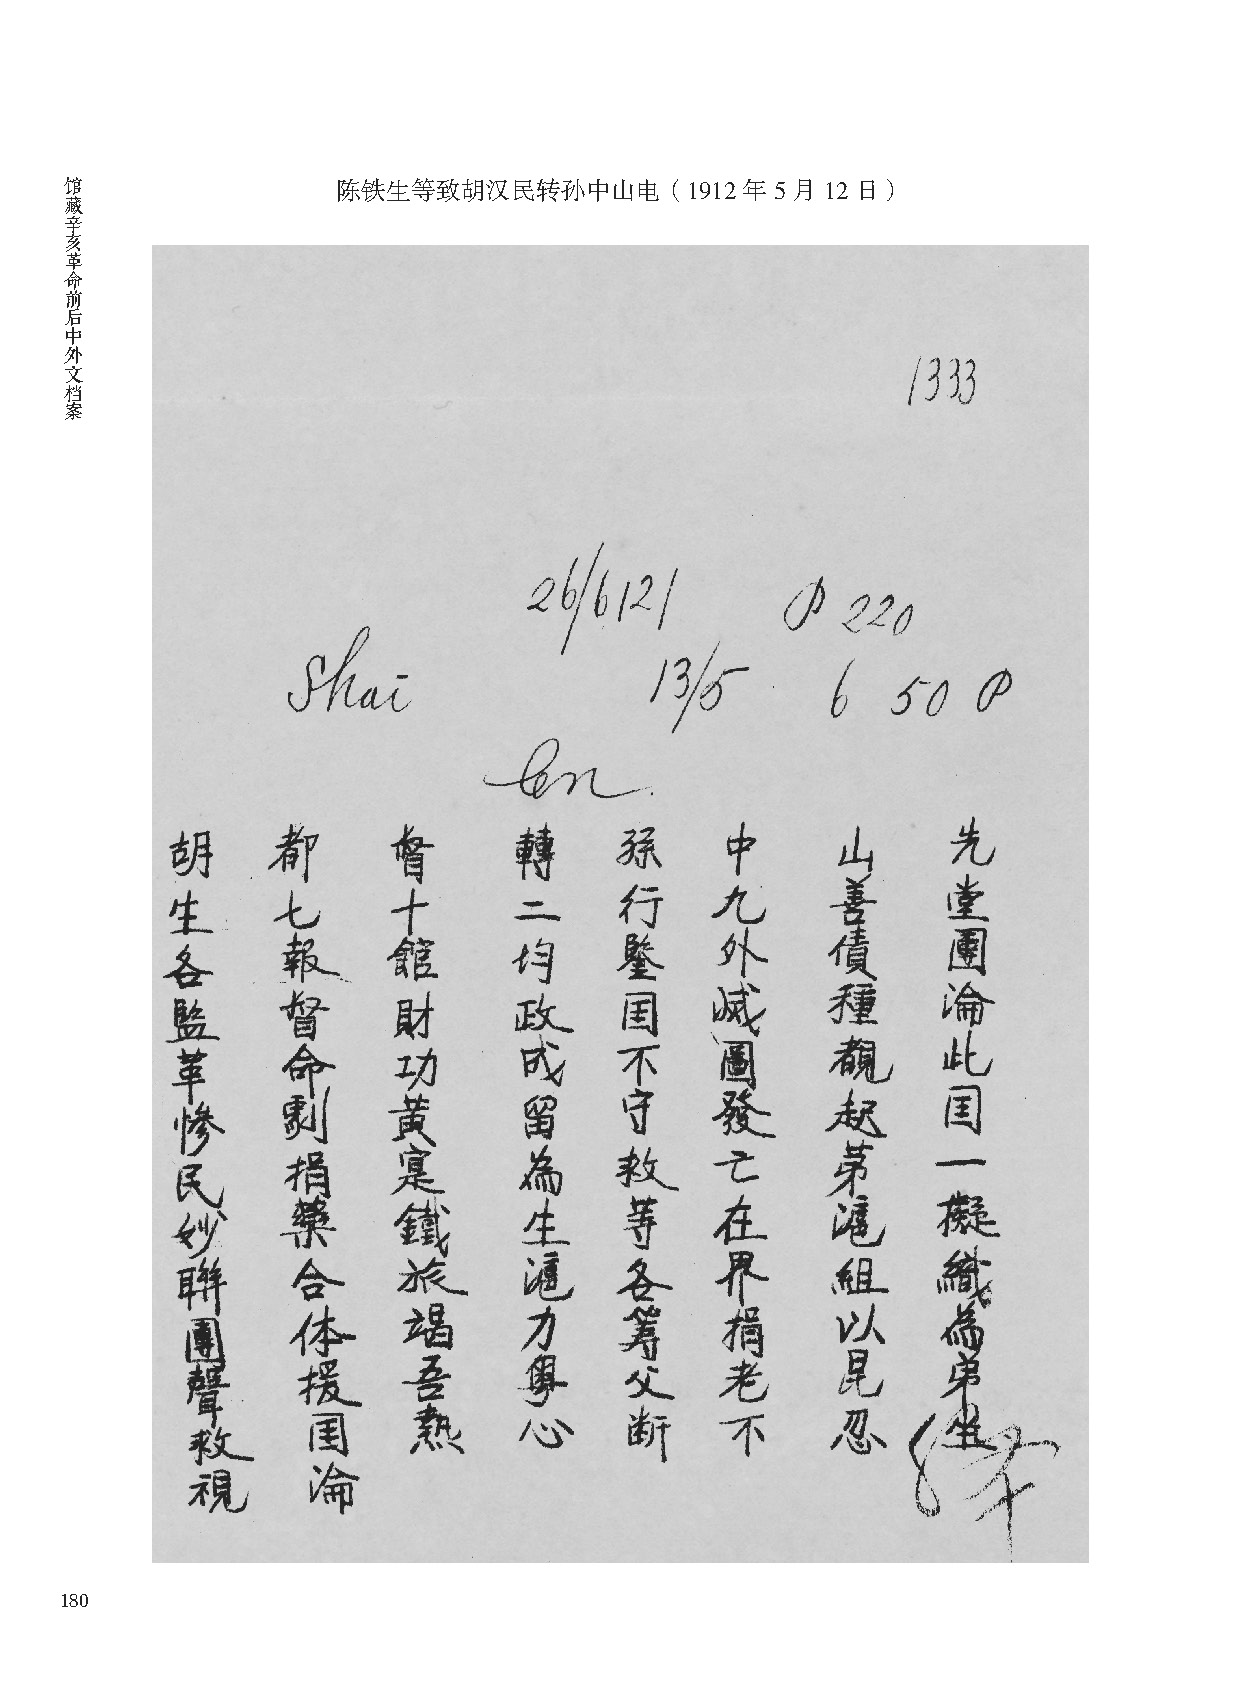 馆藏辛亥革命前后中外文档案
陈铁生等致胡汉民转孙中山电（1912年5月12日）
1333
26/6121 P 220
Shai 13/5 6 50 P
胡都督轉孫中山先
生七十二行九善堂
各報館均鑒外債團
監督財政囯滅種淪
革命功成不圖覩此
慘劇黃留守發起囯
民捐寔為救亡第一
妙藥鐵生等在滬擬
聯合旅滬各界組織
團体竭力籌捐以為
聲援吾粵父老昆弟
救囯熱心斷不忍坐
視淪
180